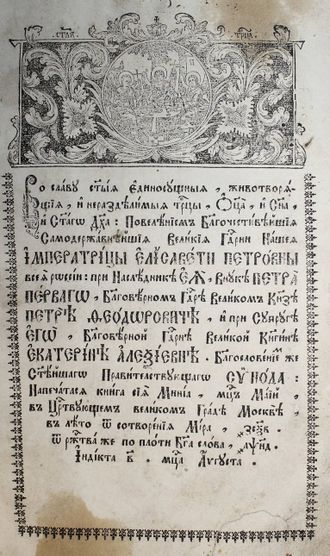 СТАѦ ТРЦА
Во славу ст҃ыѧ Единосущныѧ, животворѧ-
щіѧ, и нераздѣлимыѧ трⷪ҇цы, Оц҃а, и Сн҃а,
и Ст҃агѡ Дх҃а: Повелѣніемъ Благочестивѣйшіѧ
Самодержавнѣйшіѧ Великіѧ Гдⷭ҇рни Нашеѧ
ІМПЕРАТРІЦЫ ЕЛІСАВЕТЫ ПЕТРОВНЫ
всеѧ рѡссіи: при Наслѣдникѣ ЕѦ, Внукѣ ПЕТРА
ПЕРВАГѠ, Благовѣрномъ Гдⷭ҇рѣ Великомъ Кн҃зѣ
ПЕТРѢ ѲЕОДѠРОВИЧѢ, и при Супругѣ
ЕГѠ, Благовѣрной Гдⷭ҇рнѣ Великой Кнѧгинѣ
ЕКАТЕРИНѢ АЛЕѮІЕВНѢ. Благословеніемъ же
Ст҃ѣйшагѡ Правителствующагѡ СѴНОДА:
Напечатасѧ книга сіѧ Минїа, мцⷭ҇ъ Маїй,
въ Црⷭ҇твующемъ великомъ Градѣ Москвѣ,
въ лѣто ѿ сотворенїѧ Міра,
ѿ рж҃тва же по плоти Бг҃а слова,
Індікта мцⷭ҇а Аѵгуста.